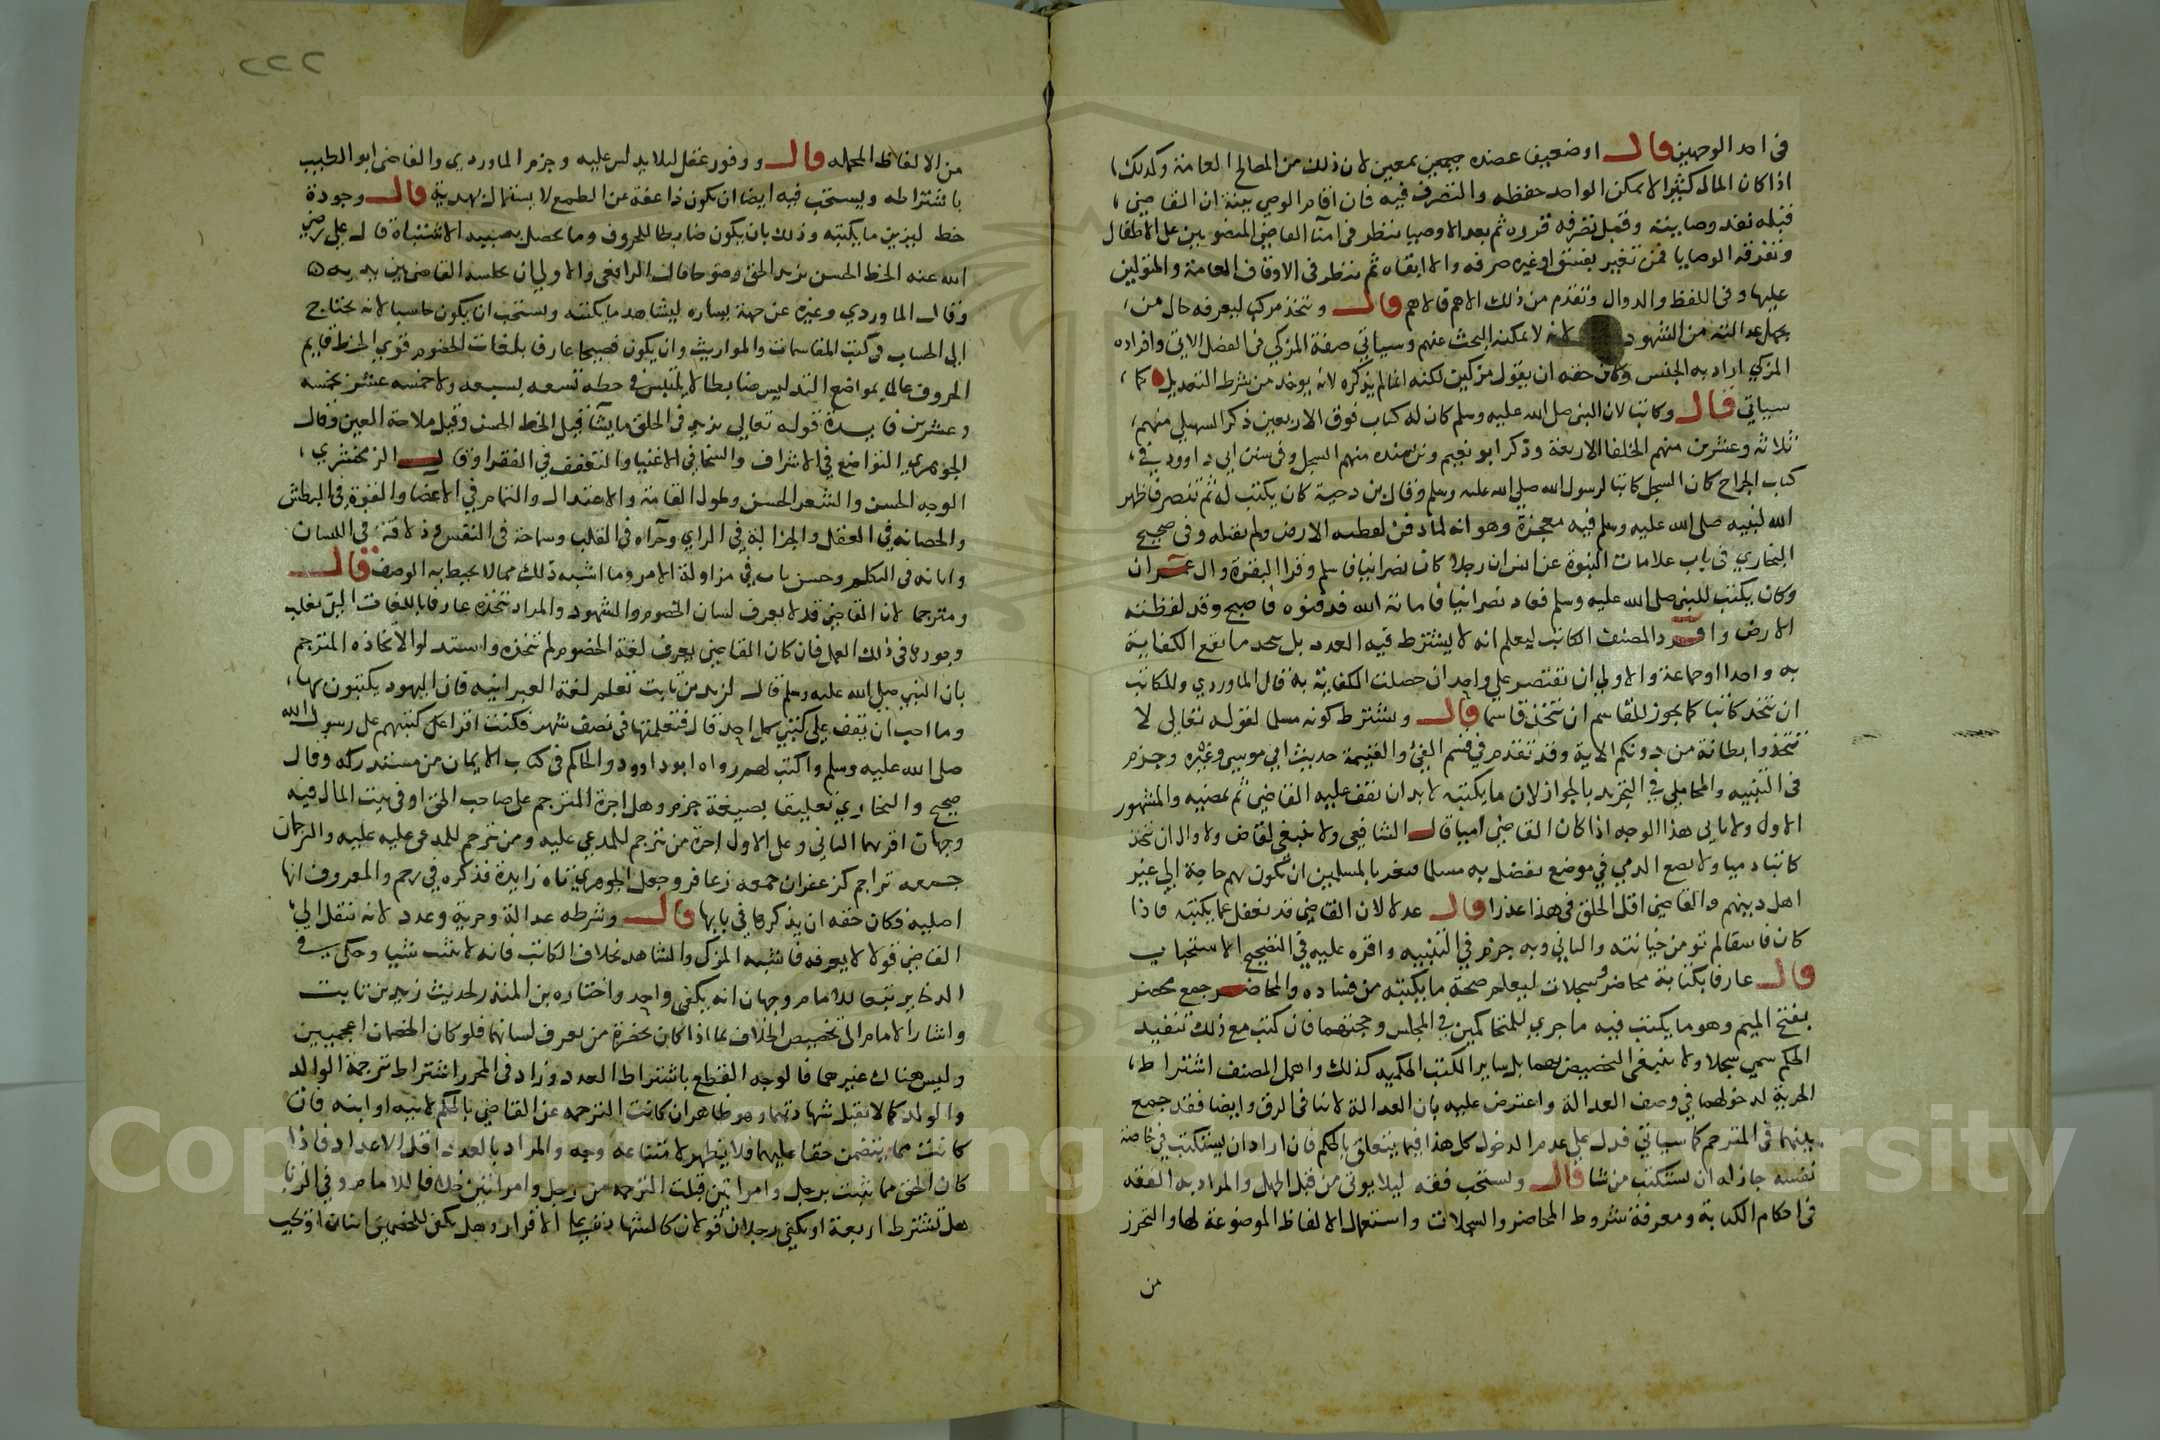 في احد الوجهين قال او ضعيف عضده بمعين لان ذلك من المصالح العامة وكذلك
اذا كان المال كثيرا لا يمكن الواحد حفظه والتصرف فيه فان اقام الوصي بينة ان القاضي
قبله نفذ وصايته وقبل تصرفه قرره ثم بعد الاوصيا ننظر في امنا القاضي المنصوبين على الاطفال
وتفرقة الوصايا فمن تغير بفسق او غيره صرفه والا ابقاه ثم ننظر في الاوقاف العامة والمتولين
عليها وفي اللقط والدوال وتقدم من ذلك الاهم فالاهم قال وتتخذ مركبا ليعرفه حال من
يجهل عدالته من الشهود لانه لا يمكنه البحث عنهم وسياتي صفة المزكي في الفصل الاتي وافراده
المزكي اراد به الجنس وكان حقه ان يقول مزكيين لكنه انما لم يذكره لانه يوخذ من شرط التعديل كما
سياتي قال وكاتبا لان النبي صلى الله عليه وسلم كان له كتاب فوق الاربعين ذكر السهيلي منهم
ثلاثة وعشرين منهم الخلفا الاربعة وذكر ابو نعيم وبن منده منهم السجل وفي سنن ابي داوود في
كتاب الجراح كان السجل كاتبا لرسول الله صلى الله عليه وسلم وقال بن دحية كان يكتب له ثم تنصر فاظهر
الله لنبيه صلى الله عليه وسلم فيه معجزة وهو انه لما دفن لفظته الارض ولم تقبله وفي صحيح
البخاري في باب علامات النبوة عن انس ان رجلا كان نصرانيا فاسلم وقرا البقرة وال عمران
وكان يكتب للنبي صلى الله عليه وسلم فعاد نصرانيا فاماته الله فدفنوه فاصبح وقد لفظته
الارض وافرد المصنف الكاتب ليعلم انه لا يشترط فيه العدد بل يتخذ ما تقع الكفاية
به واحدا او جماعة والاولى ان تقتصر على واحد ان حصلت الكفاية به قال الماوردي وللكاتب
ان نتخذ كاتبا كما يجوز للقاسم ان نتخذ قاسما قال ويشترط كونه مسلما لقوله تعالى لا
تتخذوا بطانة من دونكم الاية وقد تقدم في قسم الفيء والغنيمة حديث ابي موسى وغيره وجزم
في التنبيه والمحاملي في التجريد بالجواز لان ما يكتبه لا بد ان نقف عليه القاضي ثم يمضيه والمشهور
الاول ولا ياتي هذا الوجه اذا كان القاضي اميا قال الشافعي ولا ينبغي لقاض ولا وال ان نتخذ
كاتبا ذميا ولا نضع الذمي في موضع نفضل به مسلما فنعز بالمسلمين ان تكون بهم حاجة الى غير
اهل دينهم والقاضي اقل الخلق في هذا عذرا قال عدلا لان القاضي قد نغفل عما يكتبه فاذا
كان فاسقا لم تومن خيانته والثاني وبه جزم في التنبيه واقره عليه في التصحيح الاستحباب
قال عارفا بكتابة محاضر وسجلات ليعلم صحة ما يكتبه من فساده والمحاضر جمع محضر
بفتح الميم وهو ما يكتب فيه ما جرى للمتحاكمين في المجلس وحجتهما فان كتب مع ذلك تنفيد
الحكم سمي سجلا ولا ينبغي التخصيص بهما بل ساير الكتب الحكميه كذلك واهمل المصنف اشتراط
الحرية لدخولها في وصف العدالة واعترض عليه بان العدالة لا تنافي الرق وايضا فقد جمع
بينهما في المترجم كما سياتي فدل على عدم الدخول كل هذا فيما يتعلق بالحكم فان اراد ان يستكتب في خاصة
نفسه جاز له ان يستكتب من شا قال ويستحب فقه ليلا يوتى من قبل الجهل والمراد به التفقه
في احكام الكتابة ومعرفة شروط المحاضر والسجلات واستعمال الالفاظ الموضوعة لها والتحرز
من
٢٢٢
من الالفاظ المحتمله قال ووفور عقل ليلا يدلس عليه وجزم الماوردي والقاضي ابو الطيب
باشتراطه ويستحب فيه ايضا ان يكون ذا عفة عن الطمع لا يستمال بهدية قال وجودة
خط ليزين ما يكتبه وذلك بان يكون ضابطا للحروف وما يحصل به الاشتباه قال علي رضي
الله عنه الخط الحسن يزيد الحق وضوحا قال الرافعي والاولى ان يجلسه القاضي بين يديه
وقال الماوردي وغيره عن جهة يساره ليشاهد ما يكتبه ويستحب ان يكون حاسبا لانه يحتاج
الى الحساب في كتب المقاسمات والمواريث وان يكون فصيحا عارفا بلغات الخصوم قوي الخط قايم
الحروف عالما بمواضع التدليس ضابطا لا يلتبس في خطه تسعه بسبعه ولا خمسه عشر بخمسه
وعشرين فايدة قوله تعالى يزيد في الخلق ما يشا قيل الخط الحسن وقيل ملاحة العين وقال
الجوهري التواضع في الاشراف والسخا في الاغنيا والتعفف في الفقرا وقال الزمخشري
الوجه الحسن والشعر الحسن وطول القامة والاعتدال والتمام في الاعضا والقوة في البطش
والحصانه في العقل والجزالة في الراي وجراه في القلب وسماحة في النفس وذلاقة في اللسان
وابانه في التكلم وحسن تات في مزاولة الامر وما اشبه ذلك مما لا يحيط به الوصف قال
ومترجما لان القاضي قد لا يعرف لسان الخصوم والشهود والمراد نتخذه عارفا باللغات التي تغلب
وجودها في ذلك العمل فان كان القاضي يعرف لغة الخصوم لم نتخذه واستدلوا لاتخاذه المترجم
بان النبي صلى الله عليه وسلم قال لزيد بن ثابت تعلم لغة العبرانيه فان اليهود يكتبون بها
وما احب ان يقف على كتبي كل احد قال فتعلمتها في نصف شهر فكنت اقرا على كتبهم على رسول الله
صلى الله عليه وسلم واكتب لهم رواه ابو داوود والحاكم في كتاب الايمان من مستدركه وقال
صحيح والبخاري تعليقا بصيغة جزم وهل اجرة المترجم على صاحب الحق او في بيت المال فيه
وجهان اقربهما الثاني وعلى الاول اجرة من نترجم للمدعي عليه ومن نترجم للمدعى عليه عليه والترجمان
جمعه تراجم كزعفران جمعه زعافر وجعل الجوهري تاه زايدة فذكره في رجم والمعروف انها
اصليه فكان حقه ان يذكرها في بابها قال وشرطه عدالة وحرية وعدد لانه ننقل الى
القاضي قولا لا يعرفه فاشبه المزكي والشاهد بخلاف الكاتب فانه لا يثبت شيا وحكى في
الدخاير تبعا للامام وجهان انه يكفي واحد واختاره بن المنذر لحديث زيد بن ثابت
واشار الامام الى تخصيص الخلاف بما اذا كان بحضرة من يعرف لسانهما فلو كان الخصمان اعجميين
وليس هناك غيرهما فالوجه القطع باشتراط العدد وزاد في المحرر اشتراط ترجمة الوالد
والولد كما لا تقبل شهادتهما وهو ظاهر ان كانت الترجمه عن القاضي بالحكم لابيه او ابنه فان
كانت مما يتضمن حقا عليهما فلا يظهر لامتناعه وجه والمراد بالعدد اقل الاعداد فاذا
كان الحق مما يثبت برجل وامراتين قبلت الترجمه من رجل وامراتين خلافا للامام وفي الزنا
هل تشترط اربعة او يكفي رجلان قولان كالشهادة فيما الاقرار وهل يكفي للخصمين اثنان او يجب